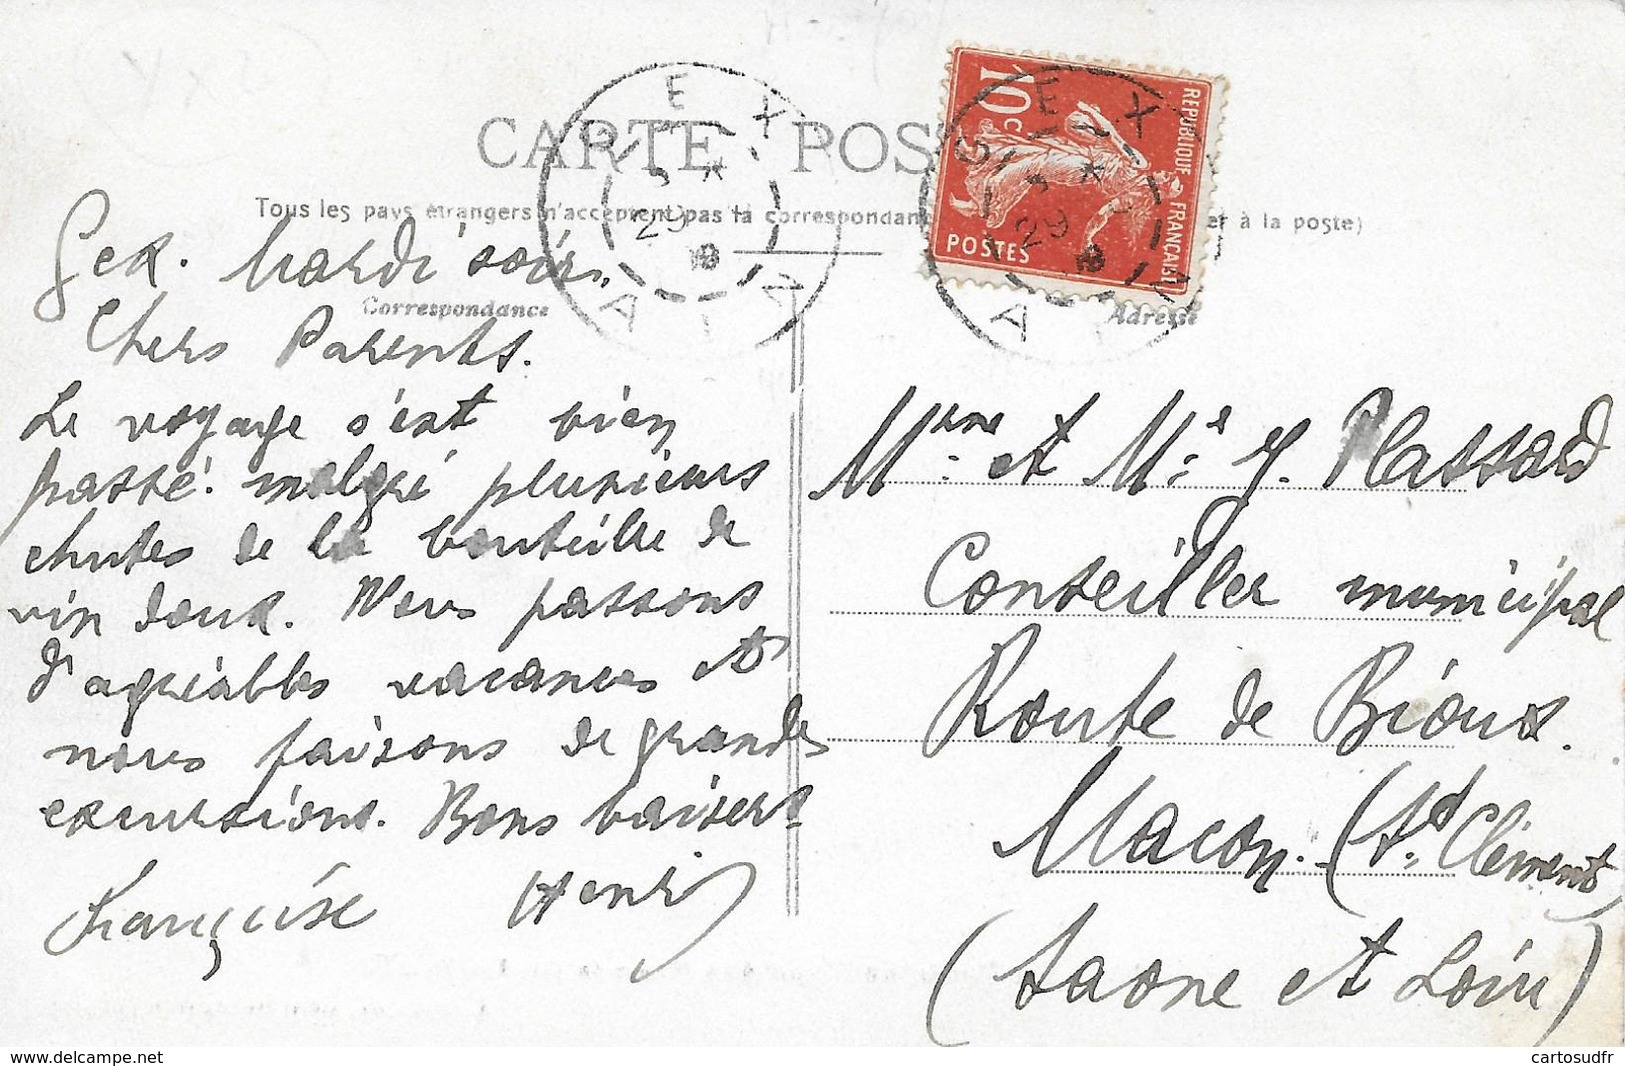 CARTE POS
Tous les pays étrangers n'acceptent pas la correspondan er à la poste)
Correspondance
Adresse
10c
REPUBLIQUE FRANÇAISE
POSTES
GEX
AIN
29
GEX
AIN
29
Gex. Mardi soir.
Chers Parents.
Le voyage s'est bien
passé malgré plusieurs
chutes de la bouteille de
vin doux. Nous passons
d'agréables vacances et
nous faisons de grandes
excursions. Bons baisers
Françoise Henri
Mme et Mr J. Plassard
Conseiller municipal
Route de Bioux.
Macon. (St Clément)
(Saone et Loire)
delcampe.net
cartosudfr